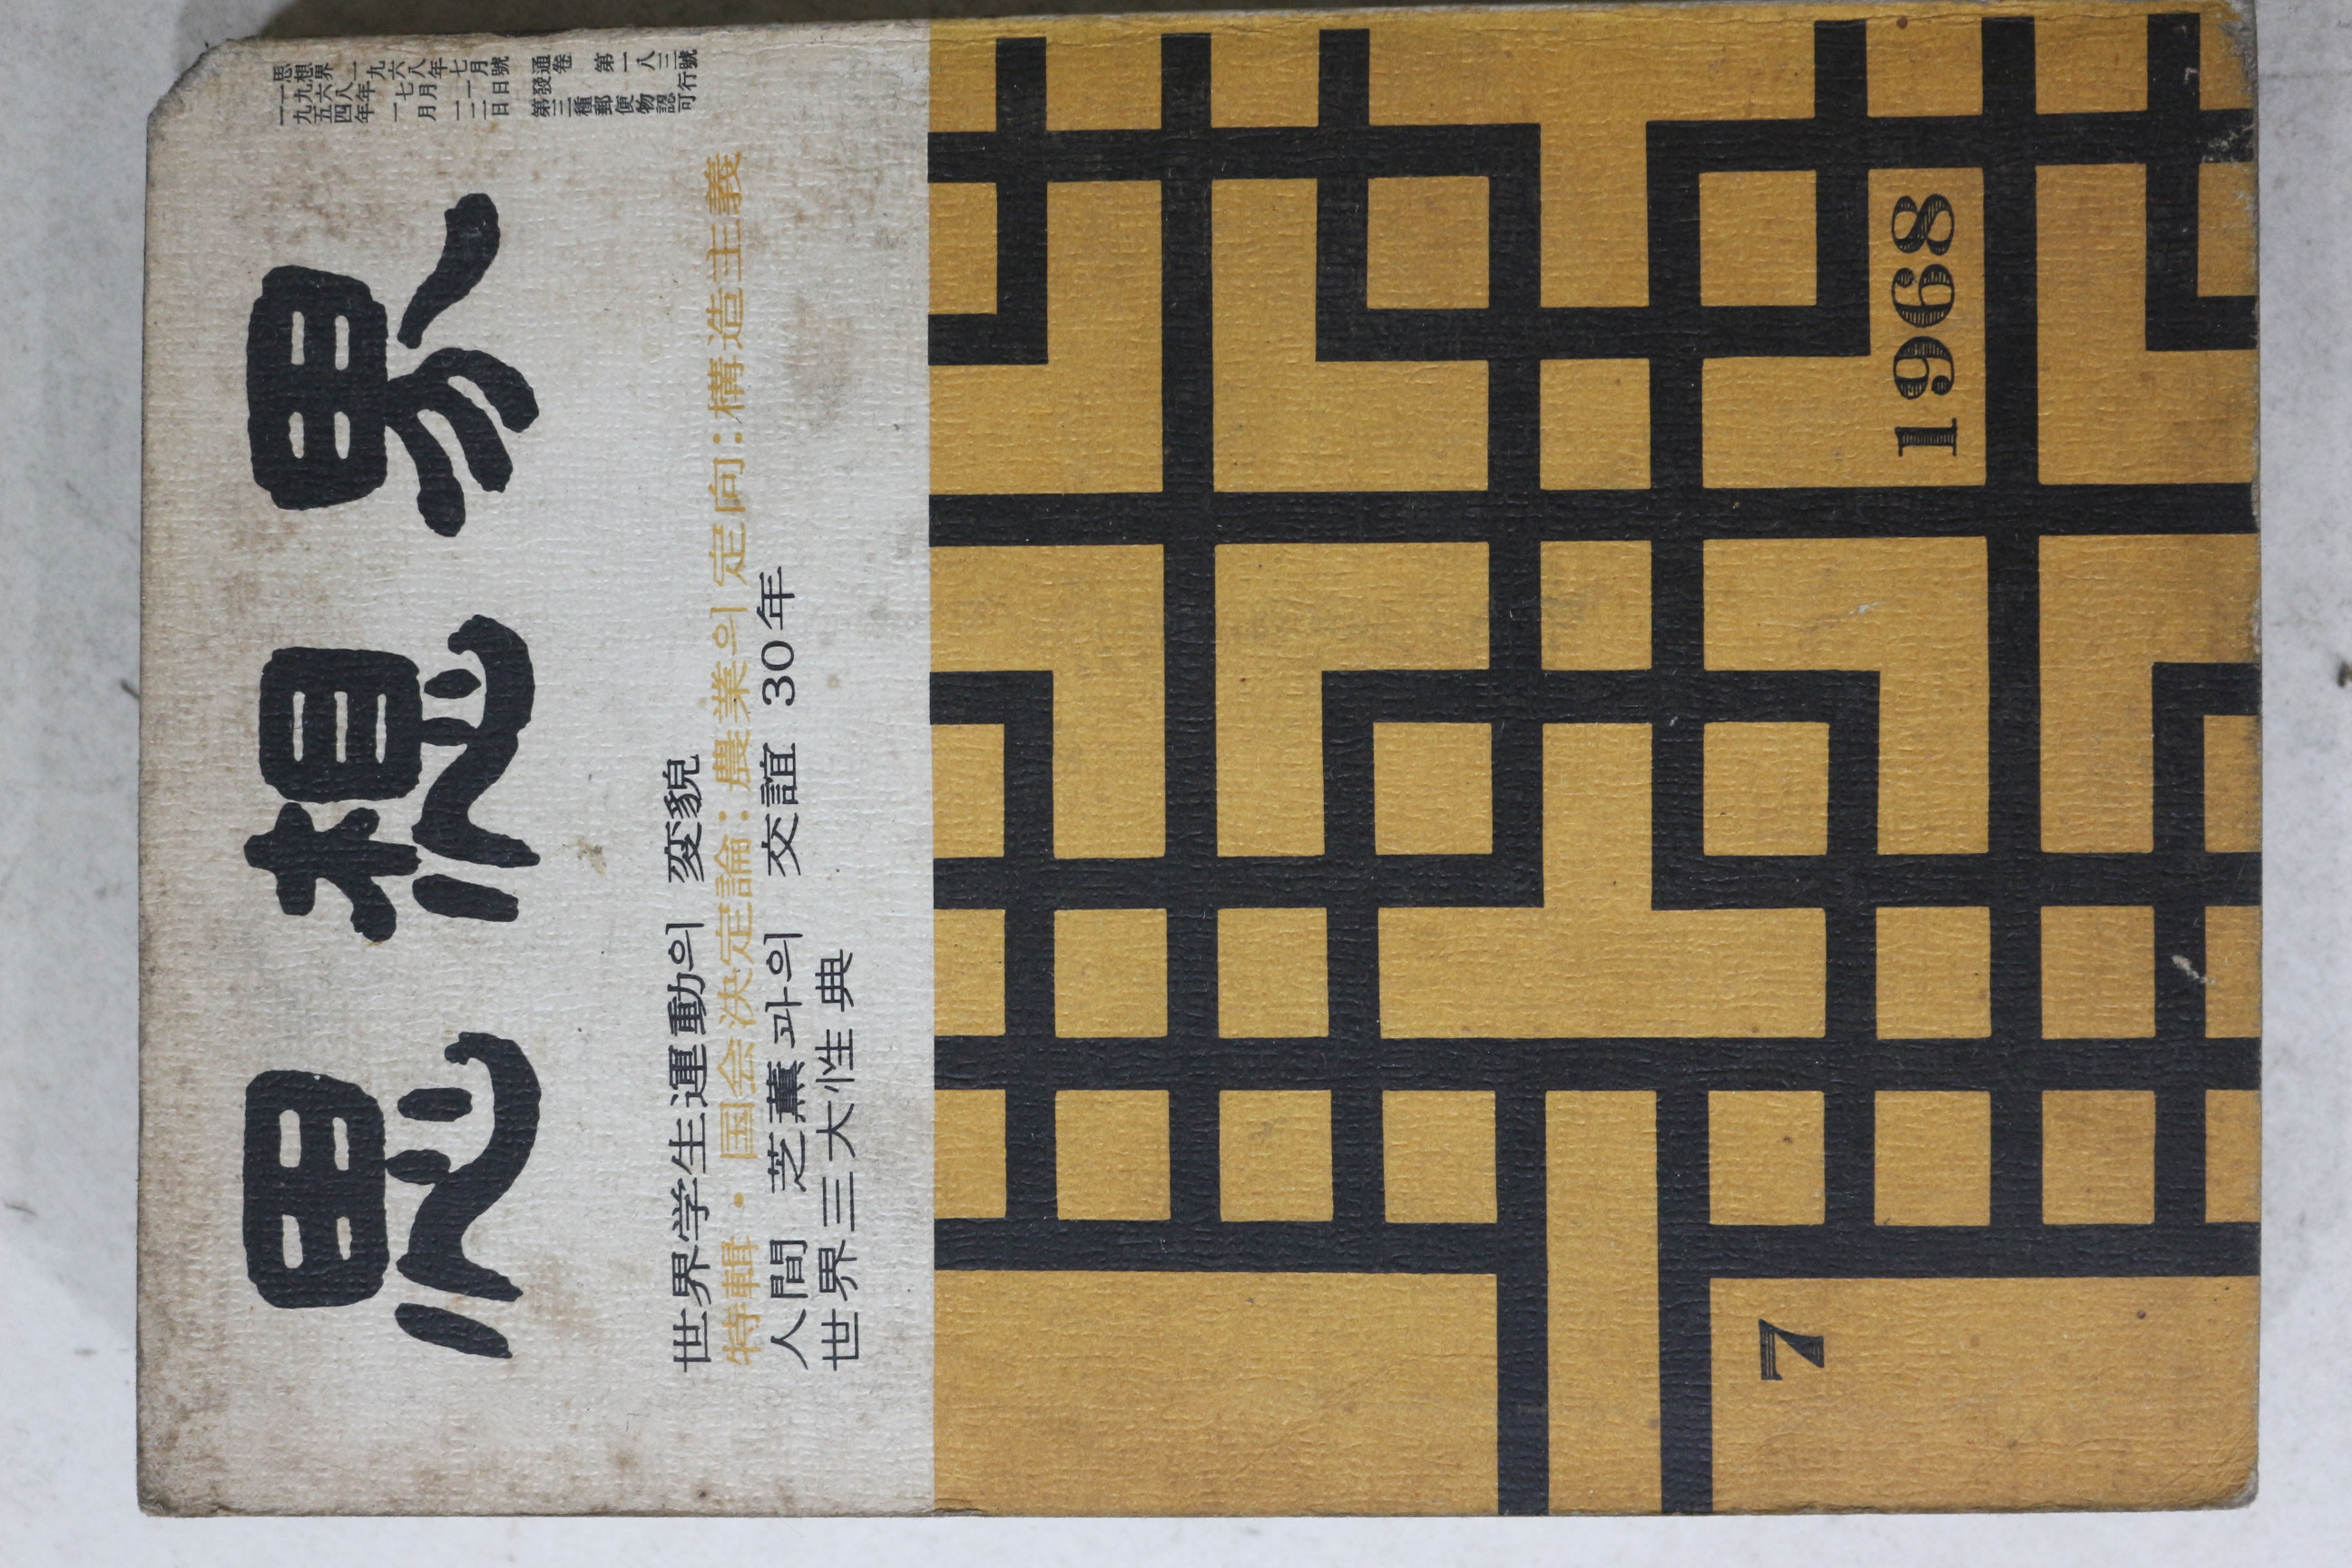 思想界
思想界 一九六八年七月號 通卷 第一八三號
一九六八年 七月 一日 發行
第三種郵便物認可
世界学生運動의 変貌
特輯・国会決定論:農業의 定向:構造主義
人間 芝薫과의 交誼 30年
世界三大性典
1968
7